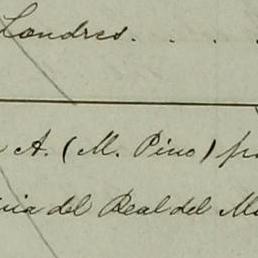 Londres. . . .
A. (M. Pino)
del Real del